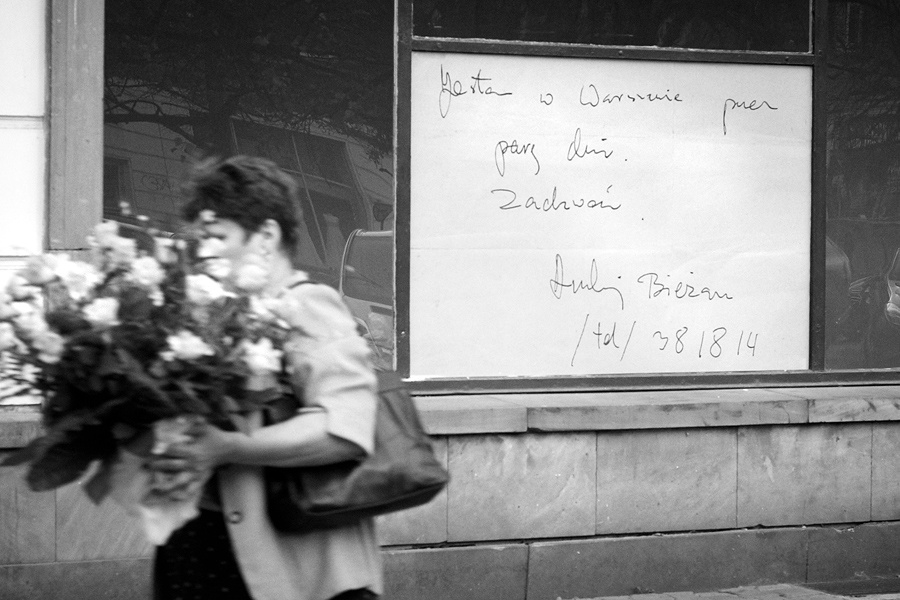 Jestem w Warszawie przez
parę dni.
Zadzwoń.
Andrzej Bieżan
/tel/ 38 18 14